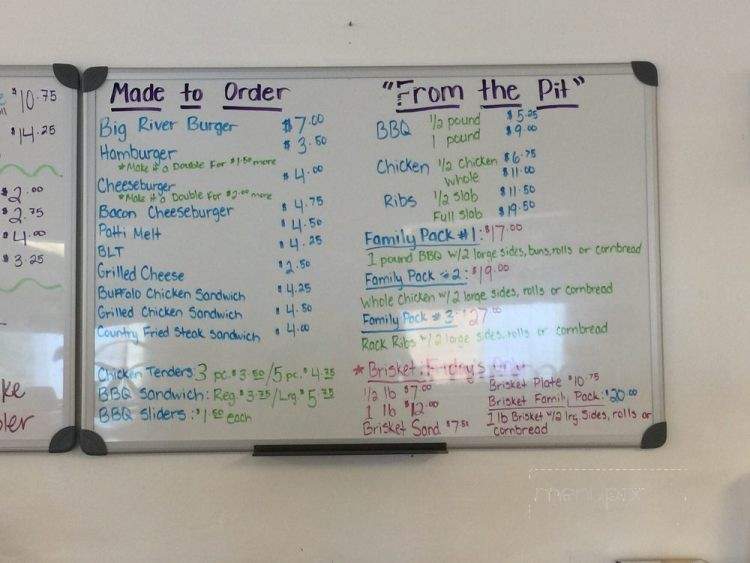 $10.75
$14.25
$2.00
$2.75
$4.00
$3.25
Made to Order
Big River Burger $7.00
Hamburger $3.50
*Make it a Double For $1.50 more
Cheeseburger $4.00
*Make it a Double For $2.00 more
Bacon Cheeseburger $4.75
Patti Melt $4.50
BLT $4.25
Grilled Cheese $2.50
Buffalo Chicken Sandwich $4.25
Grilled Chicken Sandwich $4.50
Country Fried Steak Sandwich $4.00
Chicken Tenders: 3 pc. $3.50/5 pc. $4.75
BBQ Sandwich: Reg. $3.75/Lrg. $5.75
BBQ Sliders: $1.50 each
"From the Pit"
BBQ 1/2 pound $5.25
1 pound $9.00
Chicken 1/2 Chicken $6.75
Whole $11.00
Ribs 1/2 Slab $11.50
Full Slab $19.50
Family Pack #1: $17.00
1 pound BBQ w/2 large sides, buns, rolls or cornbread
Family Pack #2: $19.00
Whole Chicken w/2 large sides, rolls or cornbread
Family Pack #3: $27.00
Rack Ribs w/2 large sides, rolls or cornbread
*Brisket: Friday's Only
1/2 lb $7.00
1 lb $12.00
Brisket Sand $7.50
Brisket Plate $10.75
Brisket Family Pack: $20.00
1 lb Brisket w/2 lrg. Sides, rolls or
cornbread
menupix